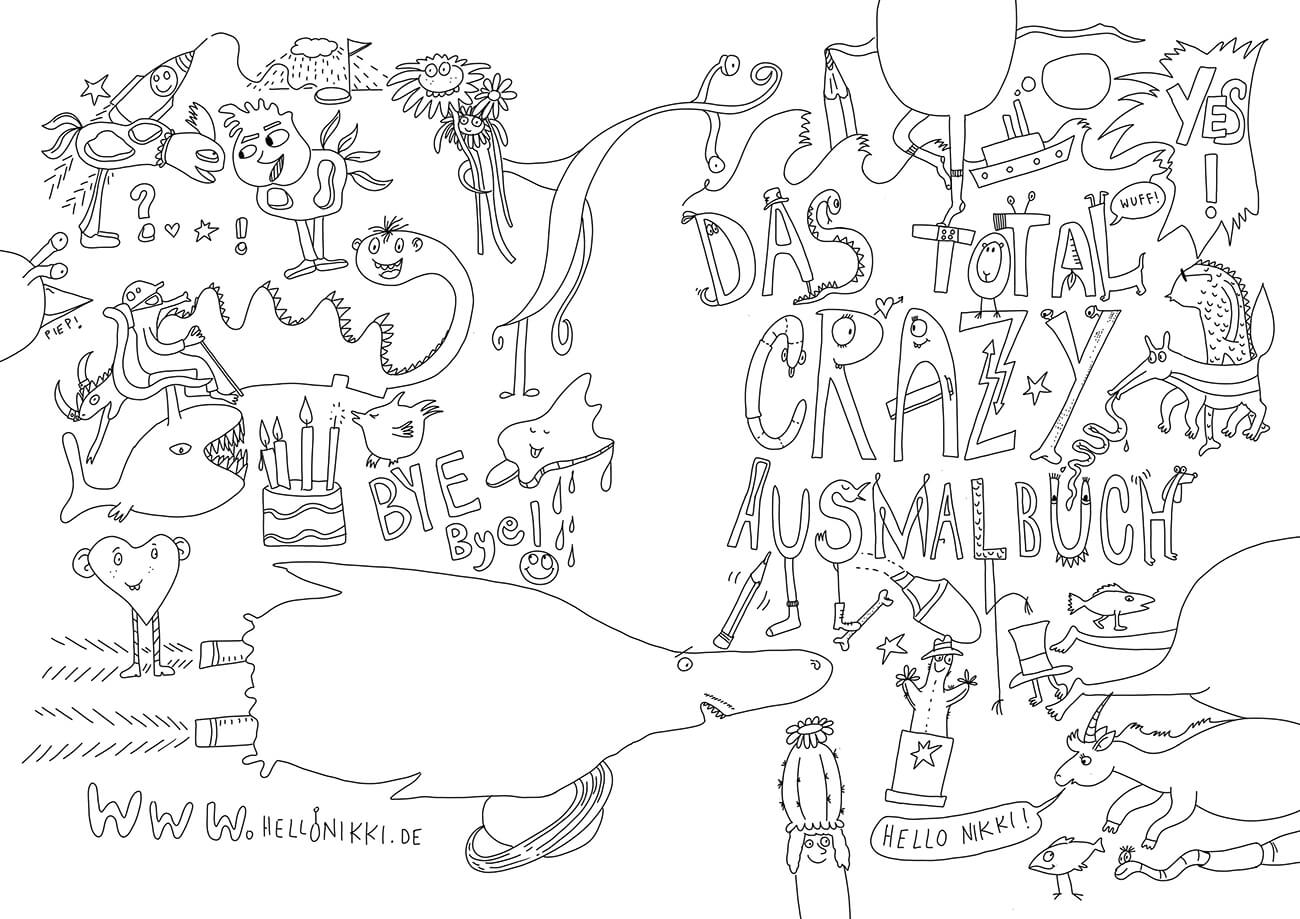 PIEP!
? ♡ ☆ !
BYE
Bye!
WWW.HELLONIKKI.DE
YES
!
WUFF!
DAS TOTAL
CRAZY
AUSMALBUCH
HELLO NIKKI!